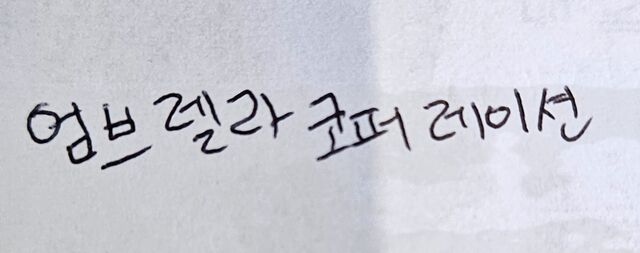 엄브렐라 코퍼레이션